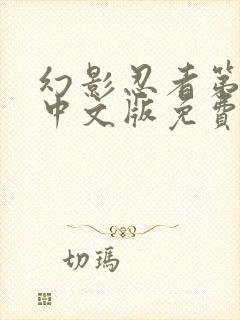 幻影忍者第
中文版免費
切瑪